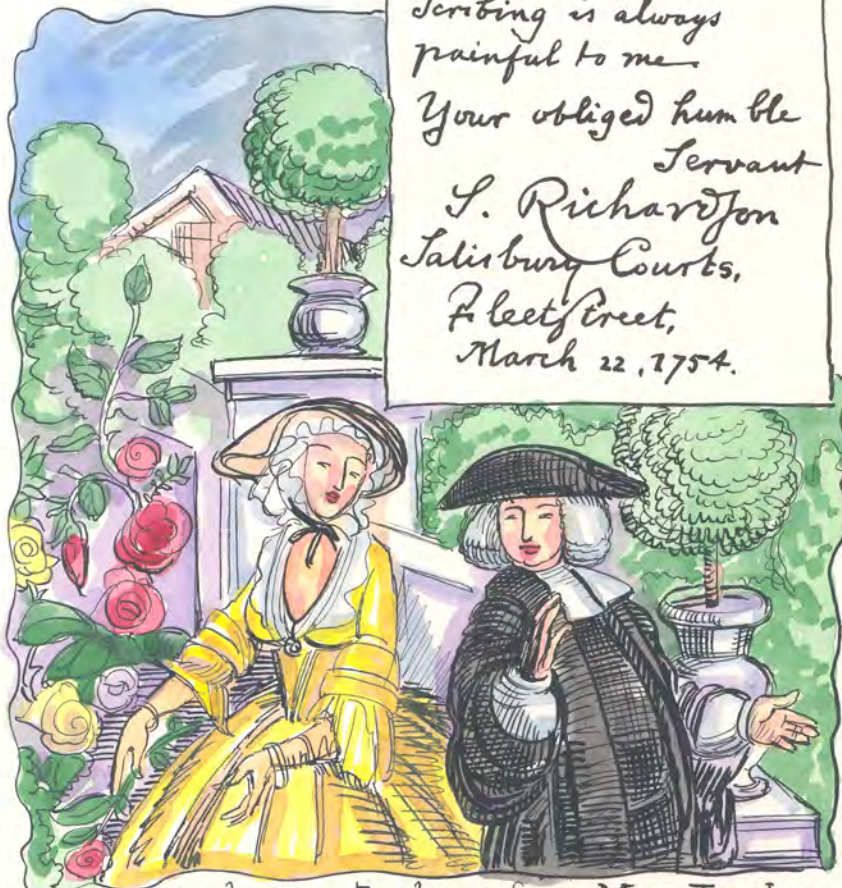 Scribing is always
painful to me
Your obliged humble
Servant
S. Richardson
Salisbury Courts,
Fleetstreet,
March 22, 1754.